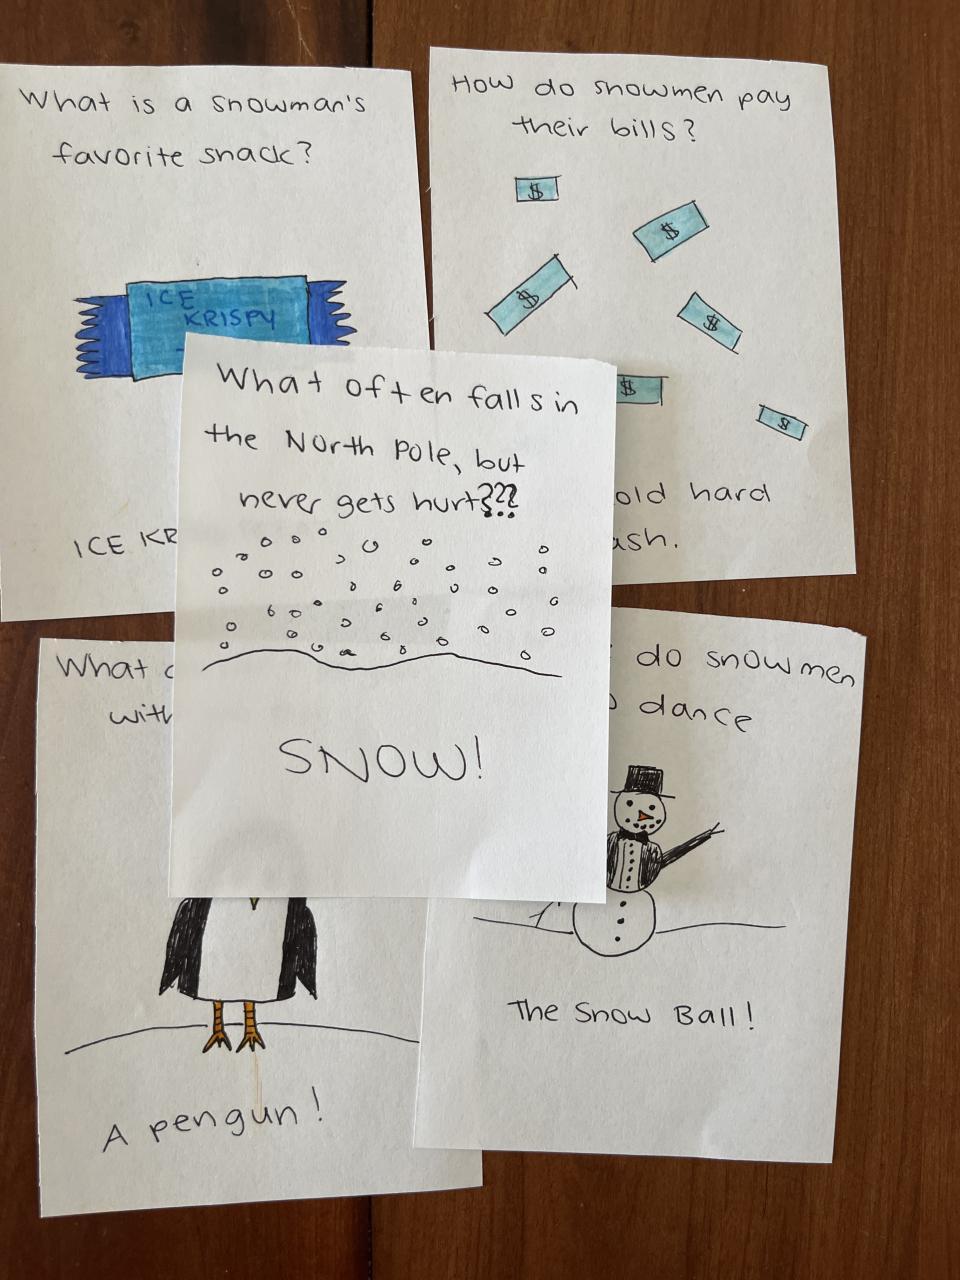 What is a snowman's
favorite snack?
ICE
KRISPY
ICE
How do snowmen pay
their bills?
$
$
$
$
$
$
hard
What often falls in
the North Pole, but
never gets hurt???
SNOW!
What
A pengun!
do snowmen
dance
The Snow Ball!